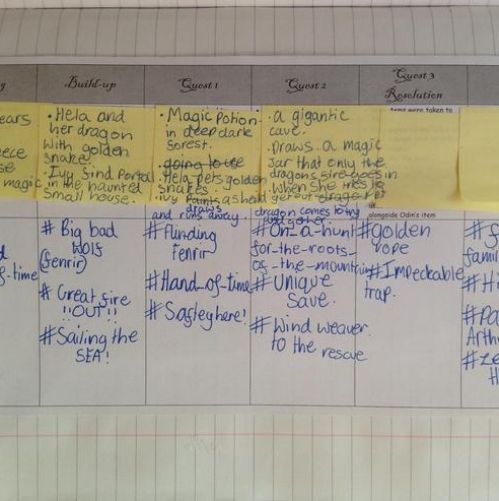 Build-up
Quest 1
Quest 2
Quest 3
Resolution
ears
ece
se
magic
of-time
• Hela and
her dragon
with golden
snake.
• Ivy find Portal
in the haunted
small house.
# Big bad
wolf
(fenrir)
# Great fire
!!OUT!!
# Sailing the
SEA!
• Magic Potion
in deep dark
forest.
going to
Hela pets golden
snakes
• ivy Paints as held
draws
and runs away.
# Funding
fenrir
# Hand_of_time
# Safley here!
• a gigantic
cave.
• Draws. a magic
Jar that only the
dragons fire goes in
When she tries to
get out
dragon comes to ivy
and got her
#On_a_hunt
for-the-roots-
of_the_mountain
# Unique
Save.
# Wind weaver
to the rescue
were taken to
alongside Odin's item
#golden
rope
#Impeckable
trap.
famil
Arth